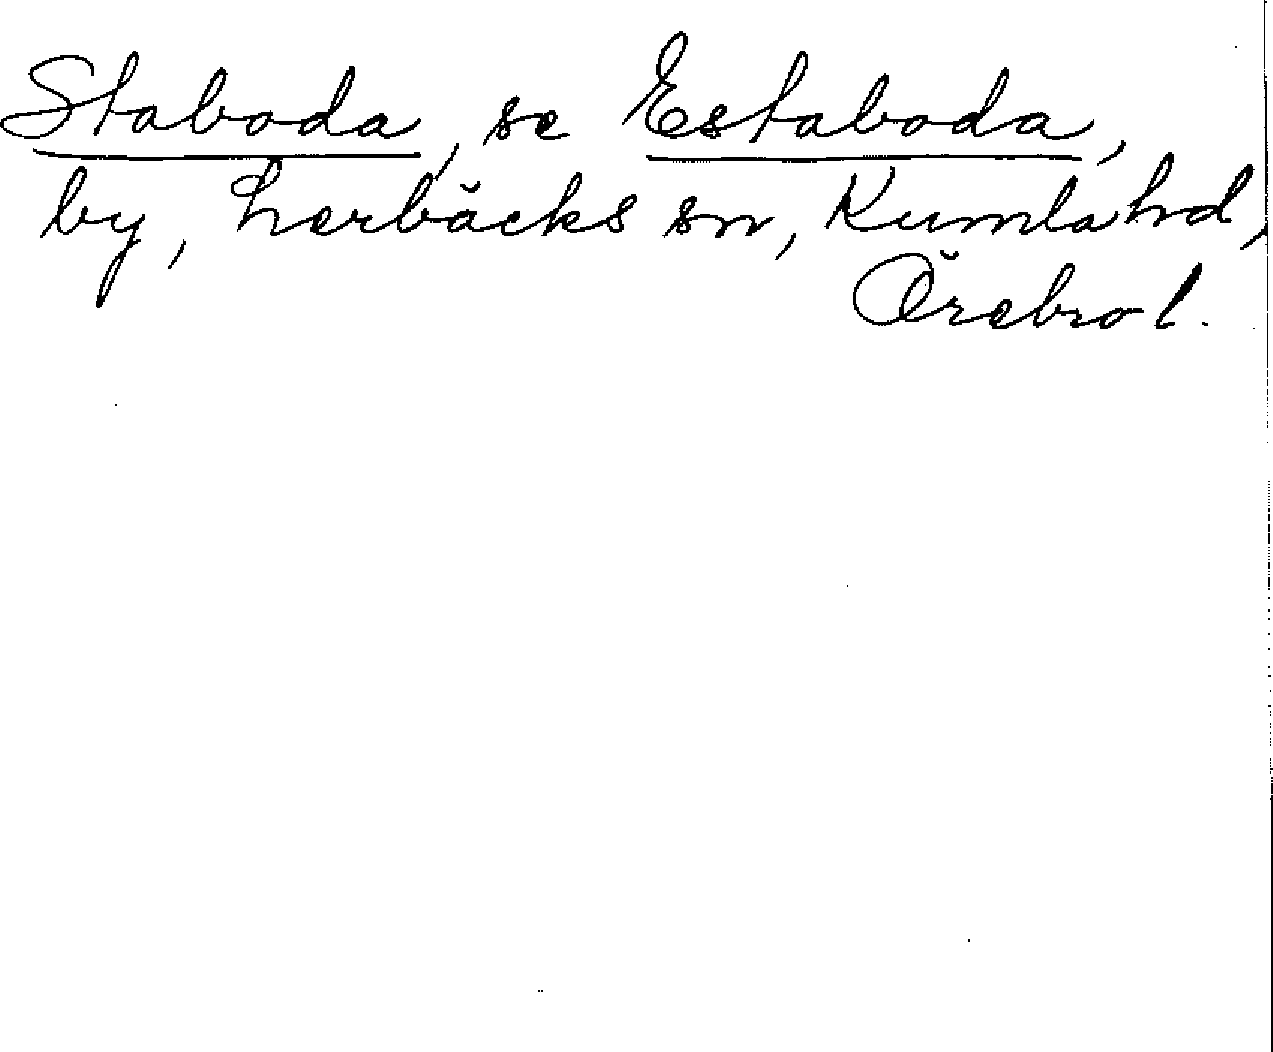 Staboda, se Estaboda,
by, Lerbäcks sn, Kumla hd,
Örebro l.